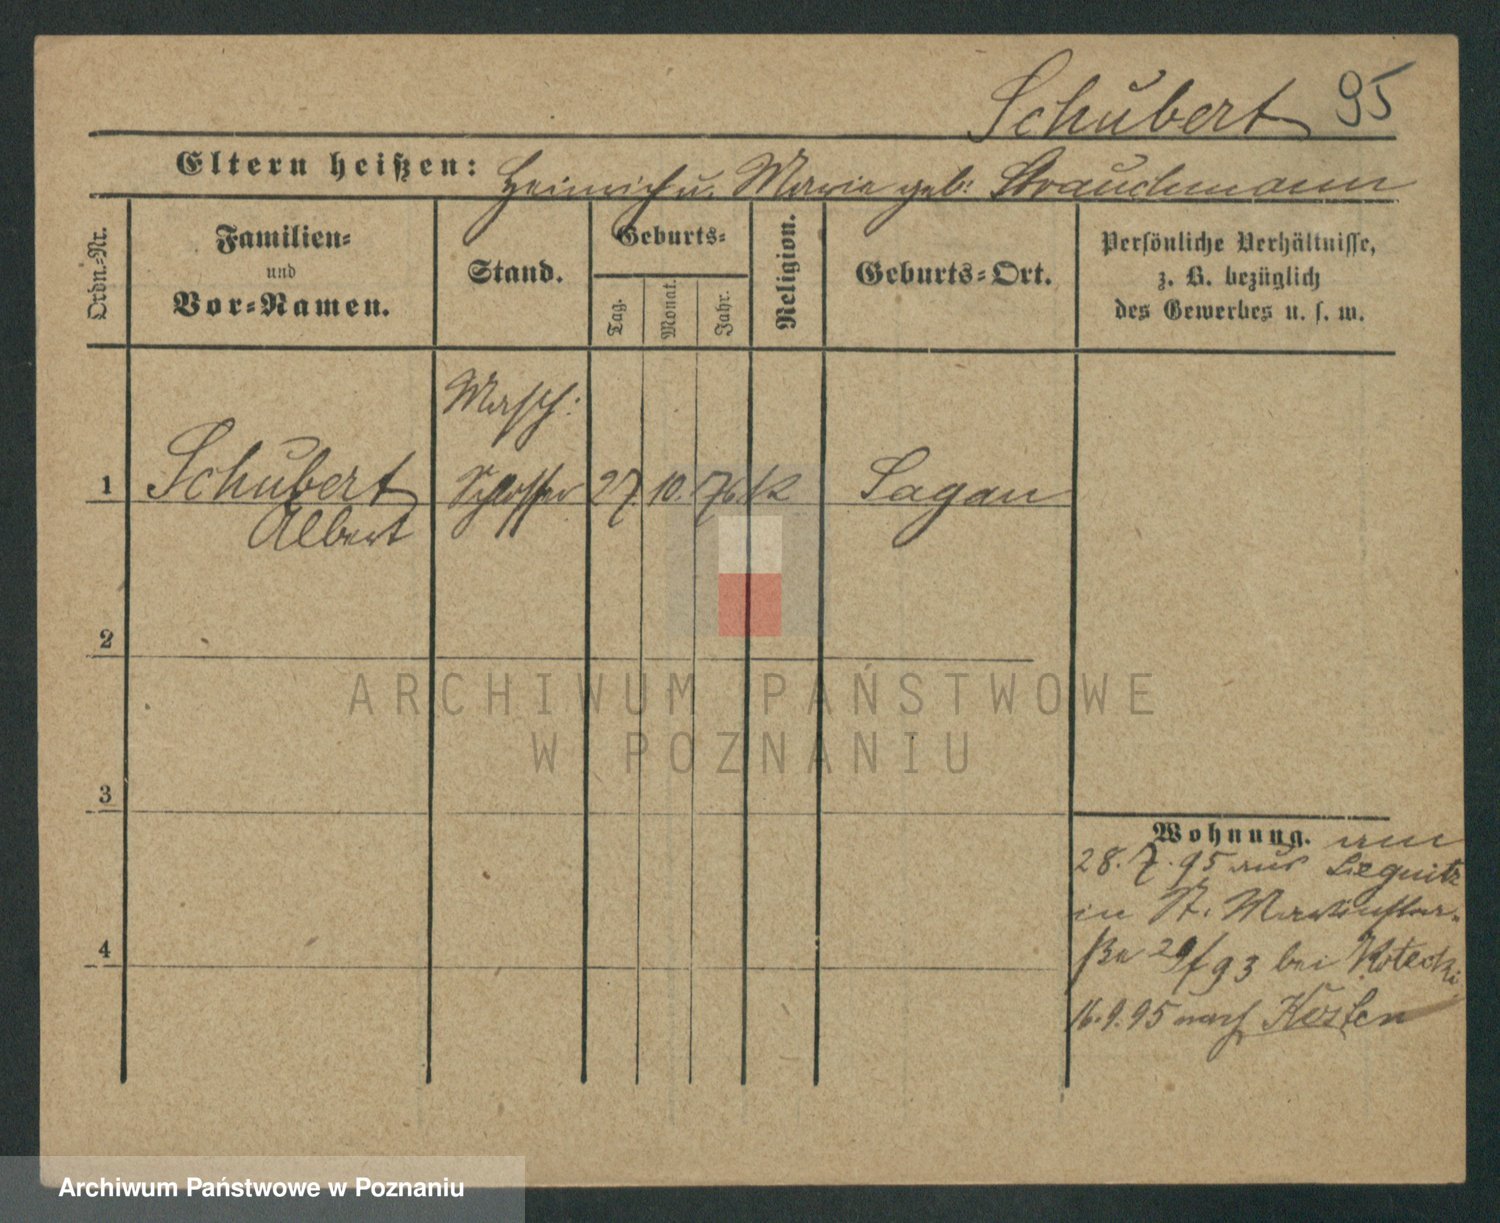 Schubert 95
Eltern heißen: Heinrich u. Marie geb: Strauchmann
Ordn.-Nr.
Familien-
und
Vor-Namen.
Stand.
Geburts-
Tag.
Monat.
Jahr.
Religion.
Geburts-Ort.
Persönliche Verhältnisse,
z. B. bezüglich
des Gewerbes u. s. w.
Masch:
1 Schubert Schlosser 27. 10. 76. K Sagan
Albert
2
3
4
Wohnung. am
28. 7. 95 aus Liegnitz
in St. Martinstra-
ße 93 bei Kotecki
16. 9. 95 nach Kosten
ARCHIWUM PAŃSTWOWE
W POZNANIU
Archiwum Państwowe w Poznaniu